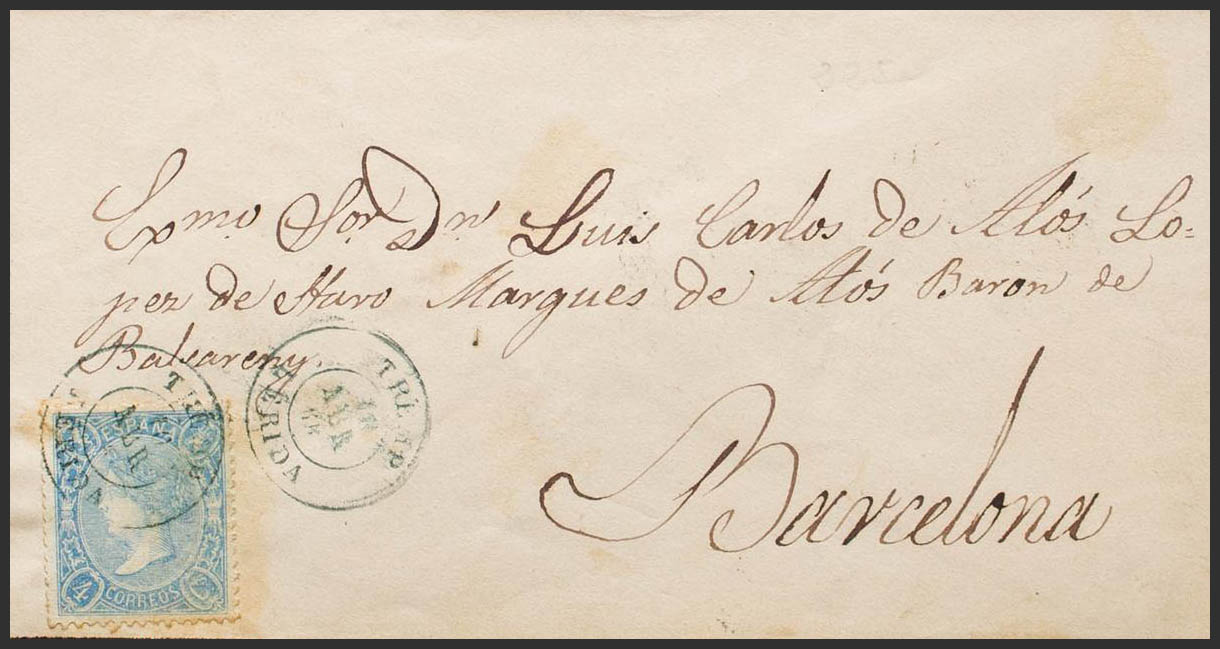 Exmo Sor Dn Luis Carlos de Alós Lo=
pez de Haro Marques de Alós Baron de
Balsareny.
Barcelona
TREMP
LERIDA
ABR
TREMP
LERIDA
ABR
ESPAÑA
4
CORREOS